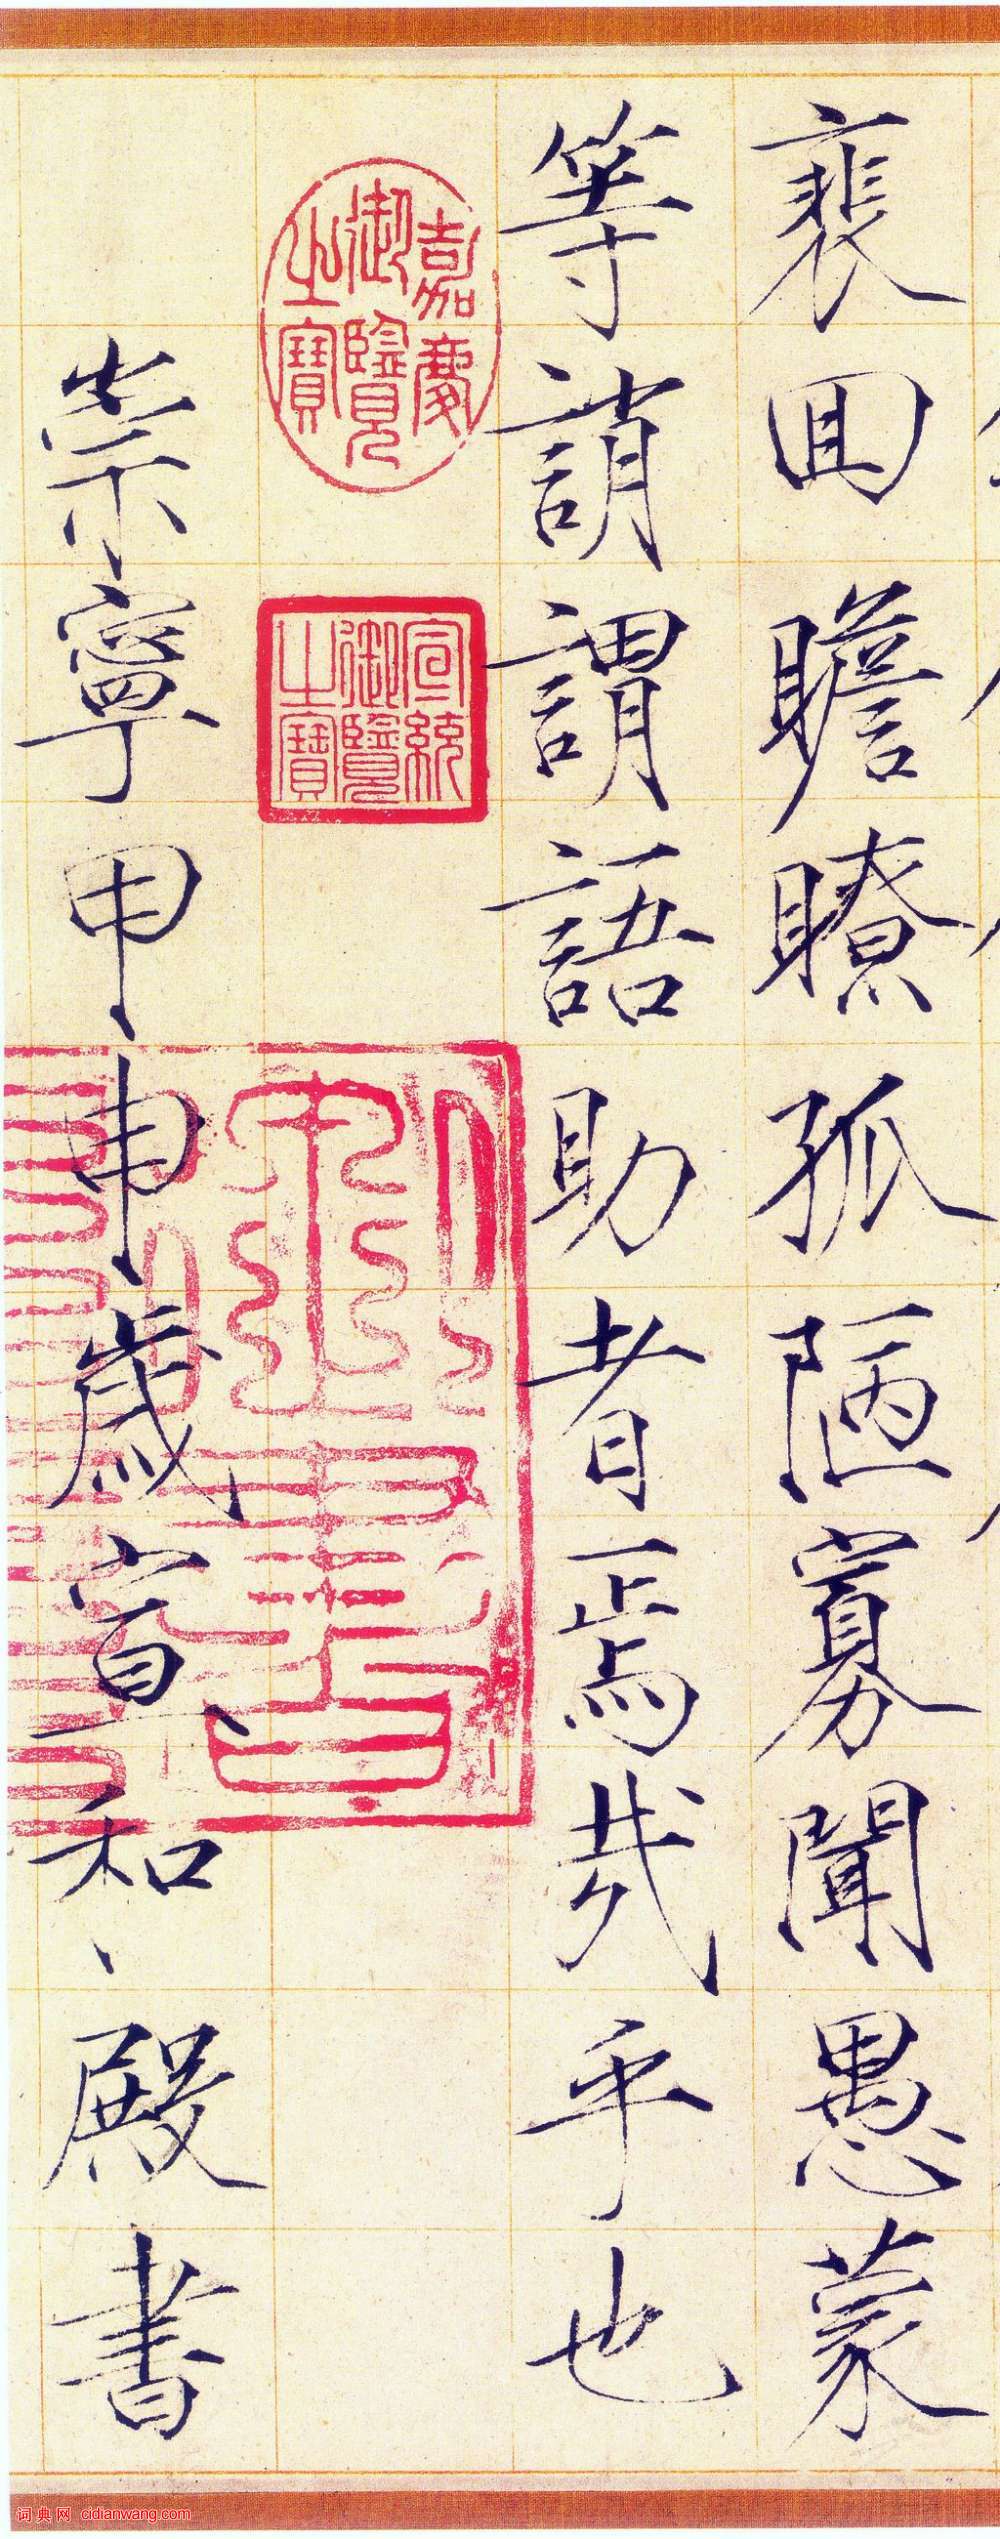 裵回瞻瞭孤陋寡聞愚蒙
等誚謂語助者焉哉乎也
嘉慶御覽之寶
宣統御覽之寶
崇寧甲申歲宣和殿書
词典网 cidianwang.com